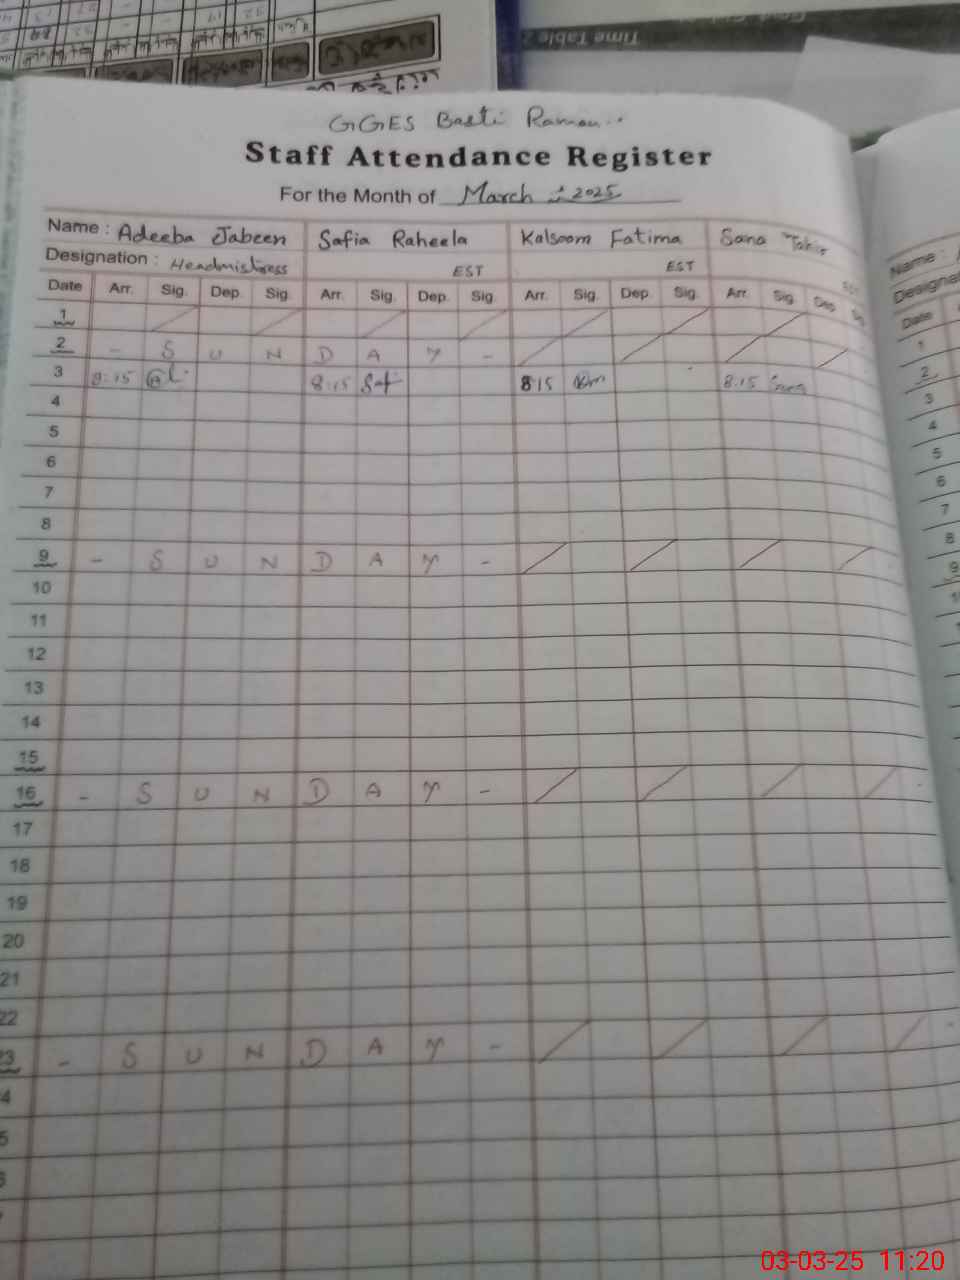 Time Table
GGES Basti
Staff Attendance Register
For the Month of March 2025
Name : Adeeba Jabeen Safia Raheela Kalsoom Fatima Sana Tahir
Designation : Headmistress EST EST EST
Date Arr. Sig. Dep. Sig. Arr. Sig. Dep. Sig. Arr. Sig. Dep. Sig. Arr. Sig. Dep. Sig.
1
2 - S U N D A Y -
3 8:15 8:15 Saf 8:15 8:15
4
5
6
7
8
9 - S U N D A Y -
10
11
12
13
14
15
16 - S U N D A Y -
17
18
19
20
21
22
23 - S U N D A Y -
4
5
Name :
Designa
Date
1
2
3
4
5
6
7
8
9
03-03-25 11:20